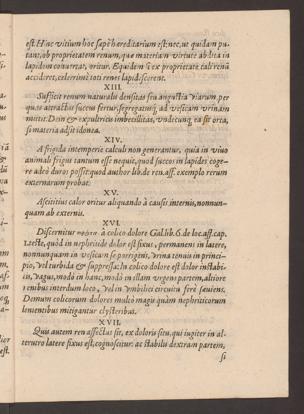 est. Hoc vitium hoc sæpè hæreditarium est: nec, ut quidam pu-
tant, ob proprietatem renum, quæ materiam virtute abdita in
lapidem convertat, oritur. Equidem si ex proprietate calirena
accideret, celerrimè toti renes lapidescerent.
XIII.
Sufficit renum naturalis densitas seu angustia viarum, per
quas attractus succus fertur, segregatusq, ad vesicam urinam
mittit. Dein & expultricis imbecillitas, undecunq ea sit orta,
si materia adsit idonea.
XIV.
A frigida intemperie calculi non generantur, quia in vivo
animali frigus tantum esse nequit, quod succos in lapides coge-
re adeo duros possit: quod author lib. de ren. aff. exemplo rerum
externarum probat.
XV.
Ascititius calor oritur aliquando à causis internis, nonnun-
quam ab externis.
XVI.
Discernitur à colico dolore Gal. lib. 6. de loc. aff. cap.
2. teste, quod in nephritide dolor est fixus, permanens in latere,
nonnunquam in vesicam se porrigens, Urina tenuis in princi-
pio, vel turbida & suppressa: In colico dolore est dolor instabi-
lis, vagus, modò in hanc, modò in illam vergens partem, altiore
renibus interdum loco, Vel in umbilici circuitu ferè sæviens.
Demum colicorum dolores multò magis quàm nephriticorum
lenientibus mitigantur clysteribus.
XVII.
Quis autem ren affectus sit, ex doloris situ, qui jugiter in al-
terutro latere fixus est, cognoscitur: ac stabilis dextram partem,
si